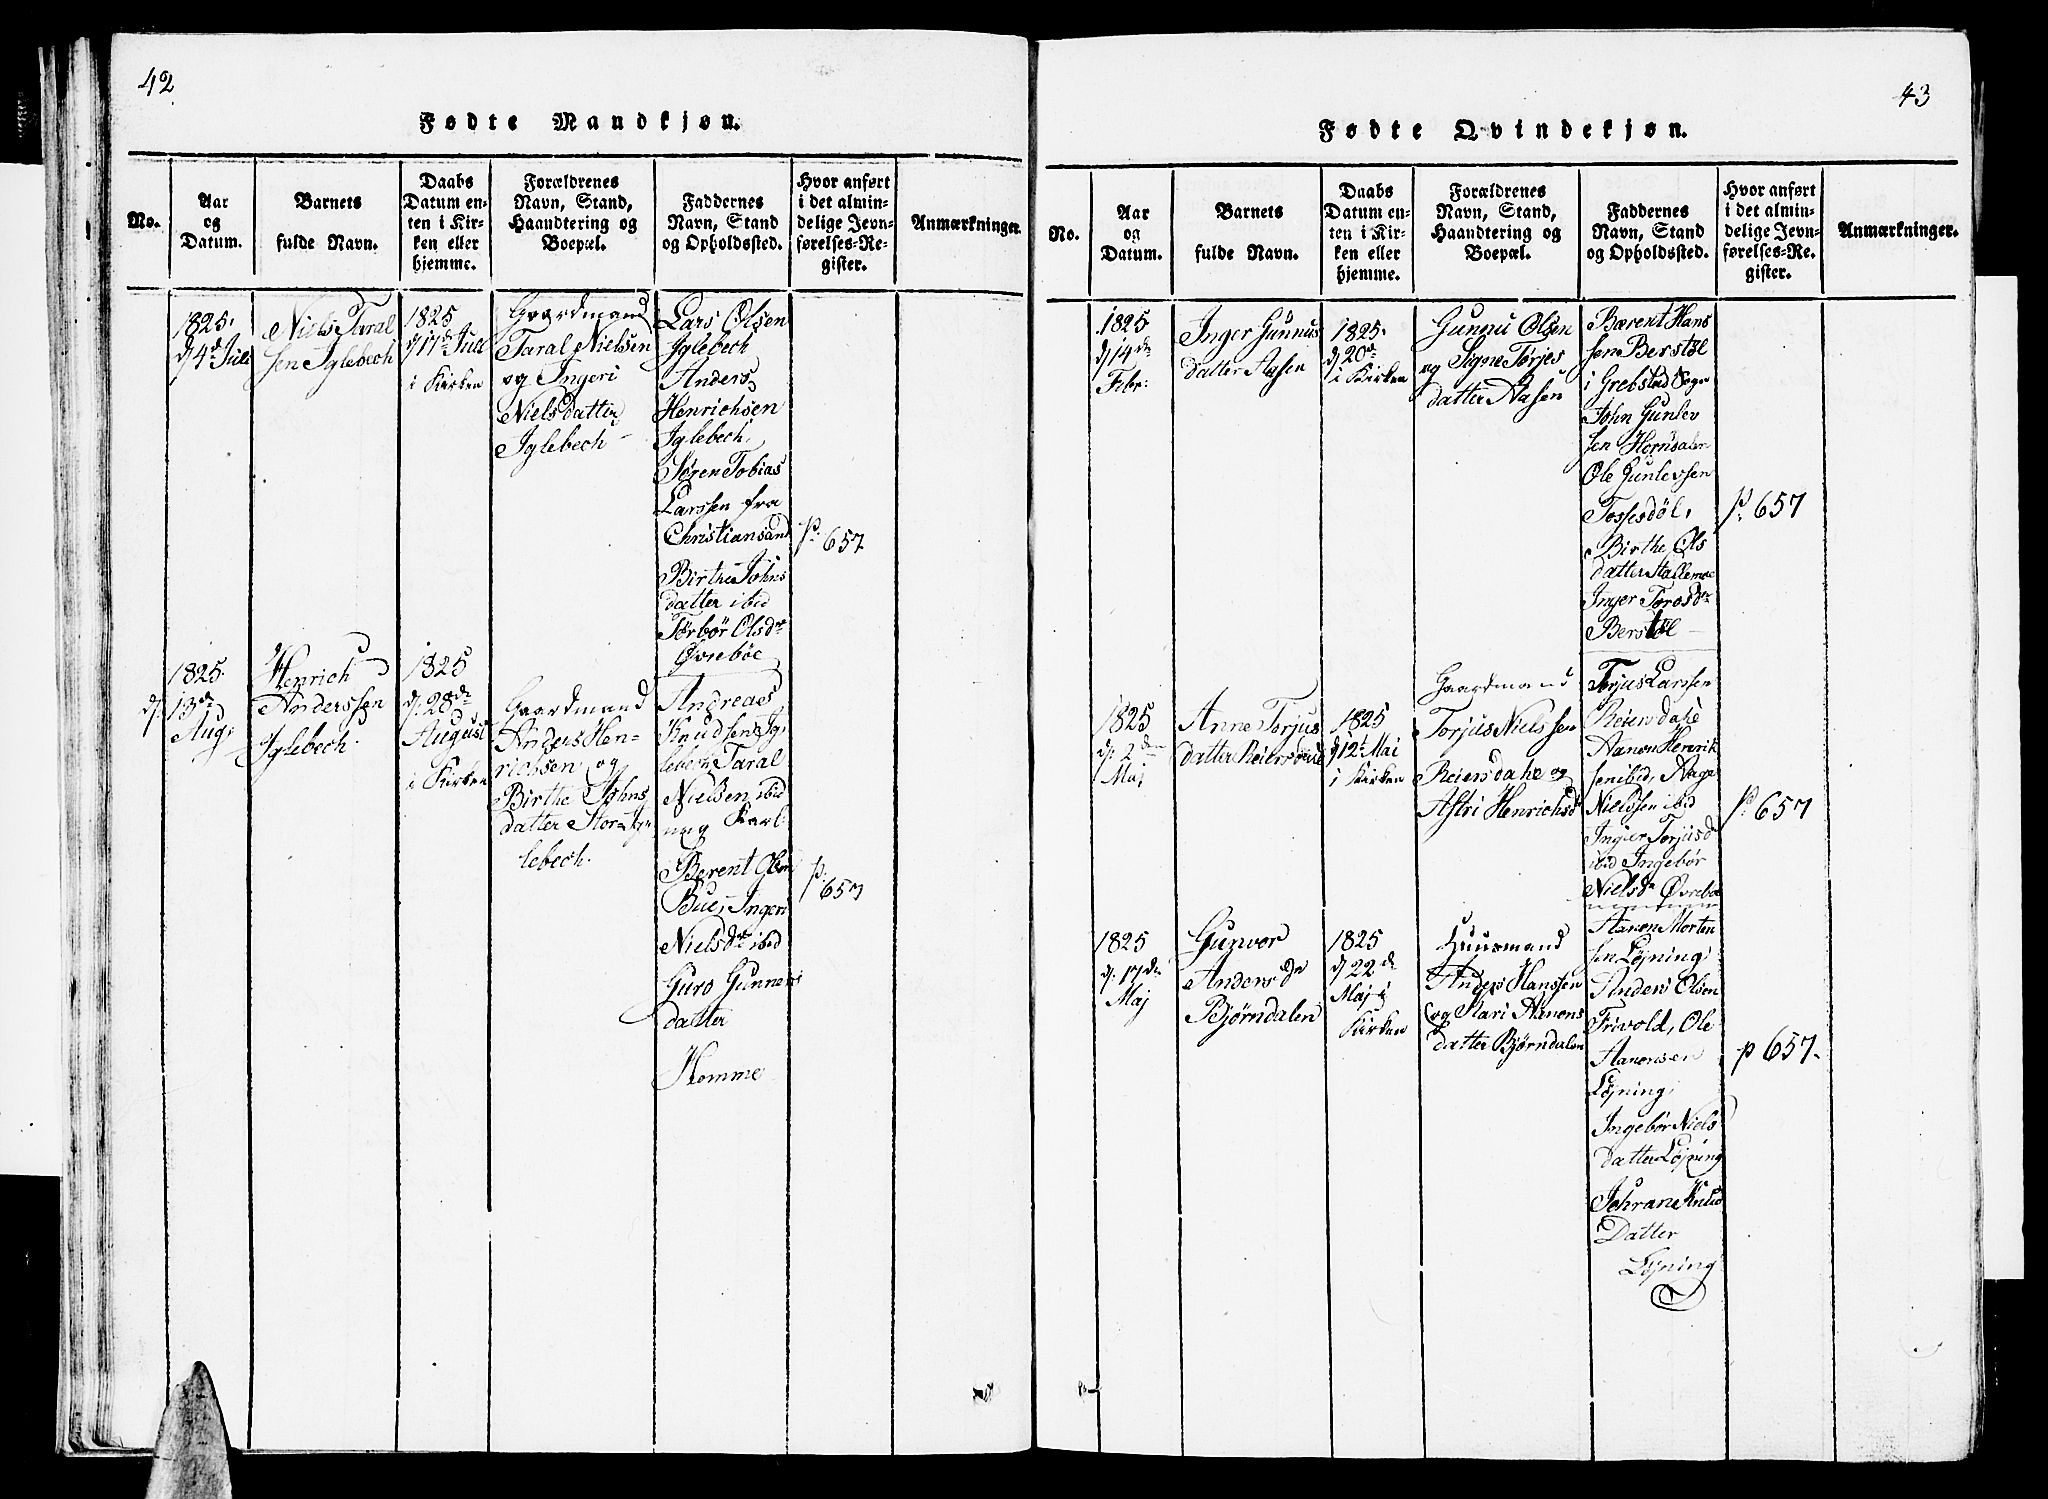 42
Fødte Mandkjøn.
No.
Aar
og
Datum.
Barnets
fulde Navn.
Daabs
Datum en-
ten i Kir-
ken eller
hjemme.
Forældrenes
Navn, Stand,
Haandtering og
Boepæl.
Faddernes
Navn, Stand
og Opholdssted.
Hvor anført
i det almin-
delige Jevn-
førelses-Re-
gister.
Anmærkninger.
1825.
d 4de Juli
Niels Taral
sen Iglebech
1825
d 17de Juli
i Kirken
Gaardmand
Taral Nielsen
og Ingeri
Nielsdatter
Iglebech
Lars Olsen
Iglebech
Anders
Henrichsen
Iglebech,
Søren Tobias
Larssen fra
Christiansand
Birthe Johns
datter ibid
Torbør Olsdr
Øvrebøe
p. 657
1825.
d. 13de
Aug:
Henrich
Anderssen
Iglebech.
1825
d. 28de
August
i Kirken
Gaardmand
Anders Hen-
richsen og
Birthe Johns
datter Stor-Ig-
lebech.
Andreas
Knudsen Ig-
lebech, Taral
Nielsen ibid
ung Karl
Berent Olsen
Bue, Ingeri
Nielsdr ibid
Guro Gunners
datter
Homme
p. 657
43
Fødte Qvindekjøn.
No.
Aar
og
Datum.
Barnets
fulde Navn.
Daabs
Datum en-
ten i Kir-
ken eller
hjemme.
Forældrenes
Navn, Stand,
Haandtering og
Boepæl.
Faddernes
Navn, Stand
og Opholdssted.
Hvor anført
i det almin-
delige Jevn-
førelses-Re-
gister.
Anmærkninger.
1825
d 14de
Febr:
Inger Gunnus
datter Aasen
1825.
d 20de
i Kirken
Gunnu Olsen
og Signe Torjes
datter Aasen
Bærent Hans
sen Berstøl
i Grebstad Sogn
John Gunlev
sen
Ole Gunlevssen
Tossesdøl,
Birthe Ols
datter Stallemoe
Inger Torosdr
Berstøl
p. 657
1825
d. 2den
Maj
Anne Torjus
datter Reiersdahl
1825
d 12te Mai
i Kirken
Gaardmand
Torjus Nielssen
Reiersdahl og
Astri Henrichsd
Torjus Larssen
Reiersdahl
Aanon Henrik
sen ibid, Aage
Nielssen ibid
Inger Torjusd
ibid Ingebør
Nielsdr Øvrebøe
p. 657
1825
d. 17de
Maj
Gunvor
Andersdr
Bjørndalen
1825
d 22de
Maj i
Kirken
Huusmand
Anders Hanssen
og Kari Aanons
datter Bjørndalen
Aanon Morten
sen Løjning,
Anders Olsen
Trivold, Ole
Aanonsen
Løjning,
Ingebør Niels
datter Løjning
Jehrane Knuds
Datter
Løjning
p 657.